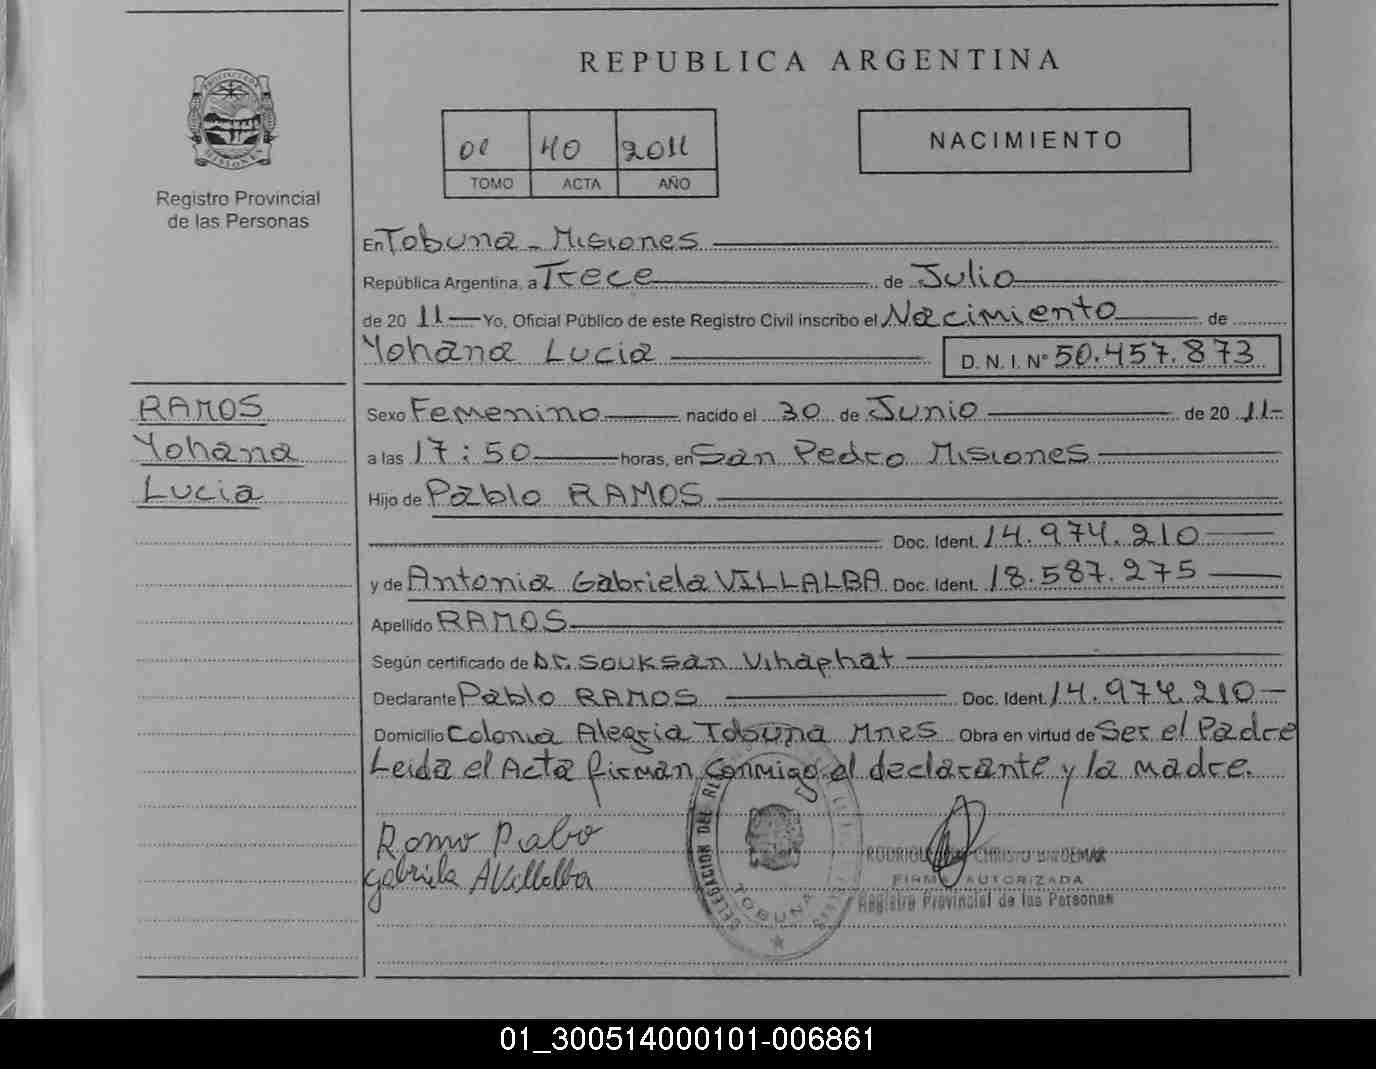 REPUBLICA ARGENTINA
PROVINCIA DE
MISIONES
Registro Provincial
de las Personas
01 40 2011
TOMO ACTA AÑO
NACIMIENTO
En Tobuna - Misiones
República Argentina, a Trece de Julio
de 20 11 Yo, Oficial Público de este Registro Civil inscribo el Nacimiento de
Yohana Lucia D. N. I. Nº 50.457.873
RAMOS
Yohana
Lucia
Sexo Femenino nacido el 30 de Junio de 20 11
a las 17:50 horas, en San Pedro Misiones
Hijo de Pablo RAMOS
Doc. Ident. 14.974.210
y de Antonia Gabriela VILLALBA Doc. Ident. 18.587.275
Apellido RAMOS
Según certificado de Dr. Souksan Vihaphat
Declarante Pablo RAMOS Doc. Ident. 14.974.210
Domicilio Colonia Alegria Tobuna Mnes Obra en virtud de Ser el Padre
Leida el Acta firman conmigo el declarante y la madre.
Romo Pabo
Gabriela A Villalba
DELEGACION DEL
TOBUNA
FIRMA AUTORIZADA
Registro Provincial de las Personas
01_300514000101-006861